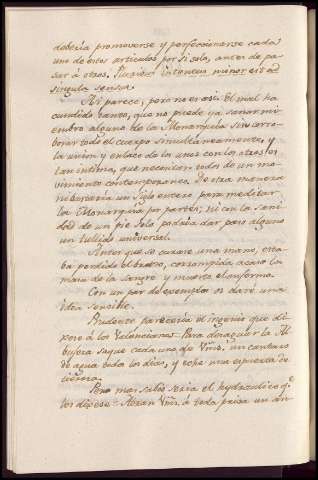 deberia promoverse y perfeccionarse cada
uno de estos articulos por si solo, antes de pa-
sar á otros. Pluribus intentus minor est ad
singula sensus.
Asi parece; pero no es asi. El mal ha
cundido tanto, que no puede ya sanar mi-
embro alguno de la Monarquia sin corro-
borar todo el cuerpo simultaneamente; y
la union y enlace de la unos con los otros es
tan intima, que necesitan todos de un mo-
vimiento contemporaneo. De otra manera
ni bastaria un siglo entero para meditar
la Monarquia por partes; ni con la sani-
dad de un pie solo podria dar paso alguno
un tullido universal.
Antes que se curase una mano, esta-
ba perdido el brazo, corrompida acaso la
masa de la sangre y muerto el enfermo.
Con un par de exemplos os daré una
idea sensible.
Prudente pareceria el ingenio que di-
xese á los Valencianos = Para desaguar la Al-
bufera saque cada uno de Vms. un cantaro
de agua todos los dias, y eche una espuerta de
tierra.
Pero mas sabio seria el hydraulico q.e
los dixese = Abran Vms. á toda prisa un an-